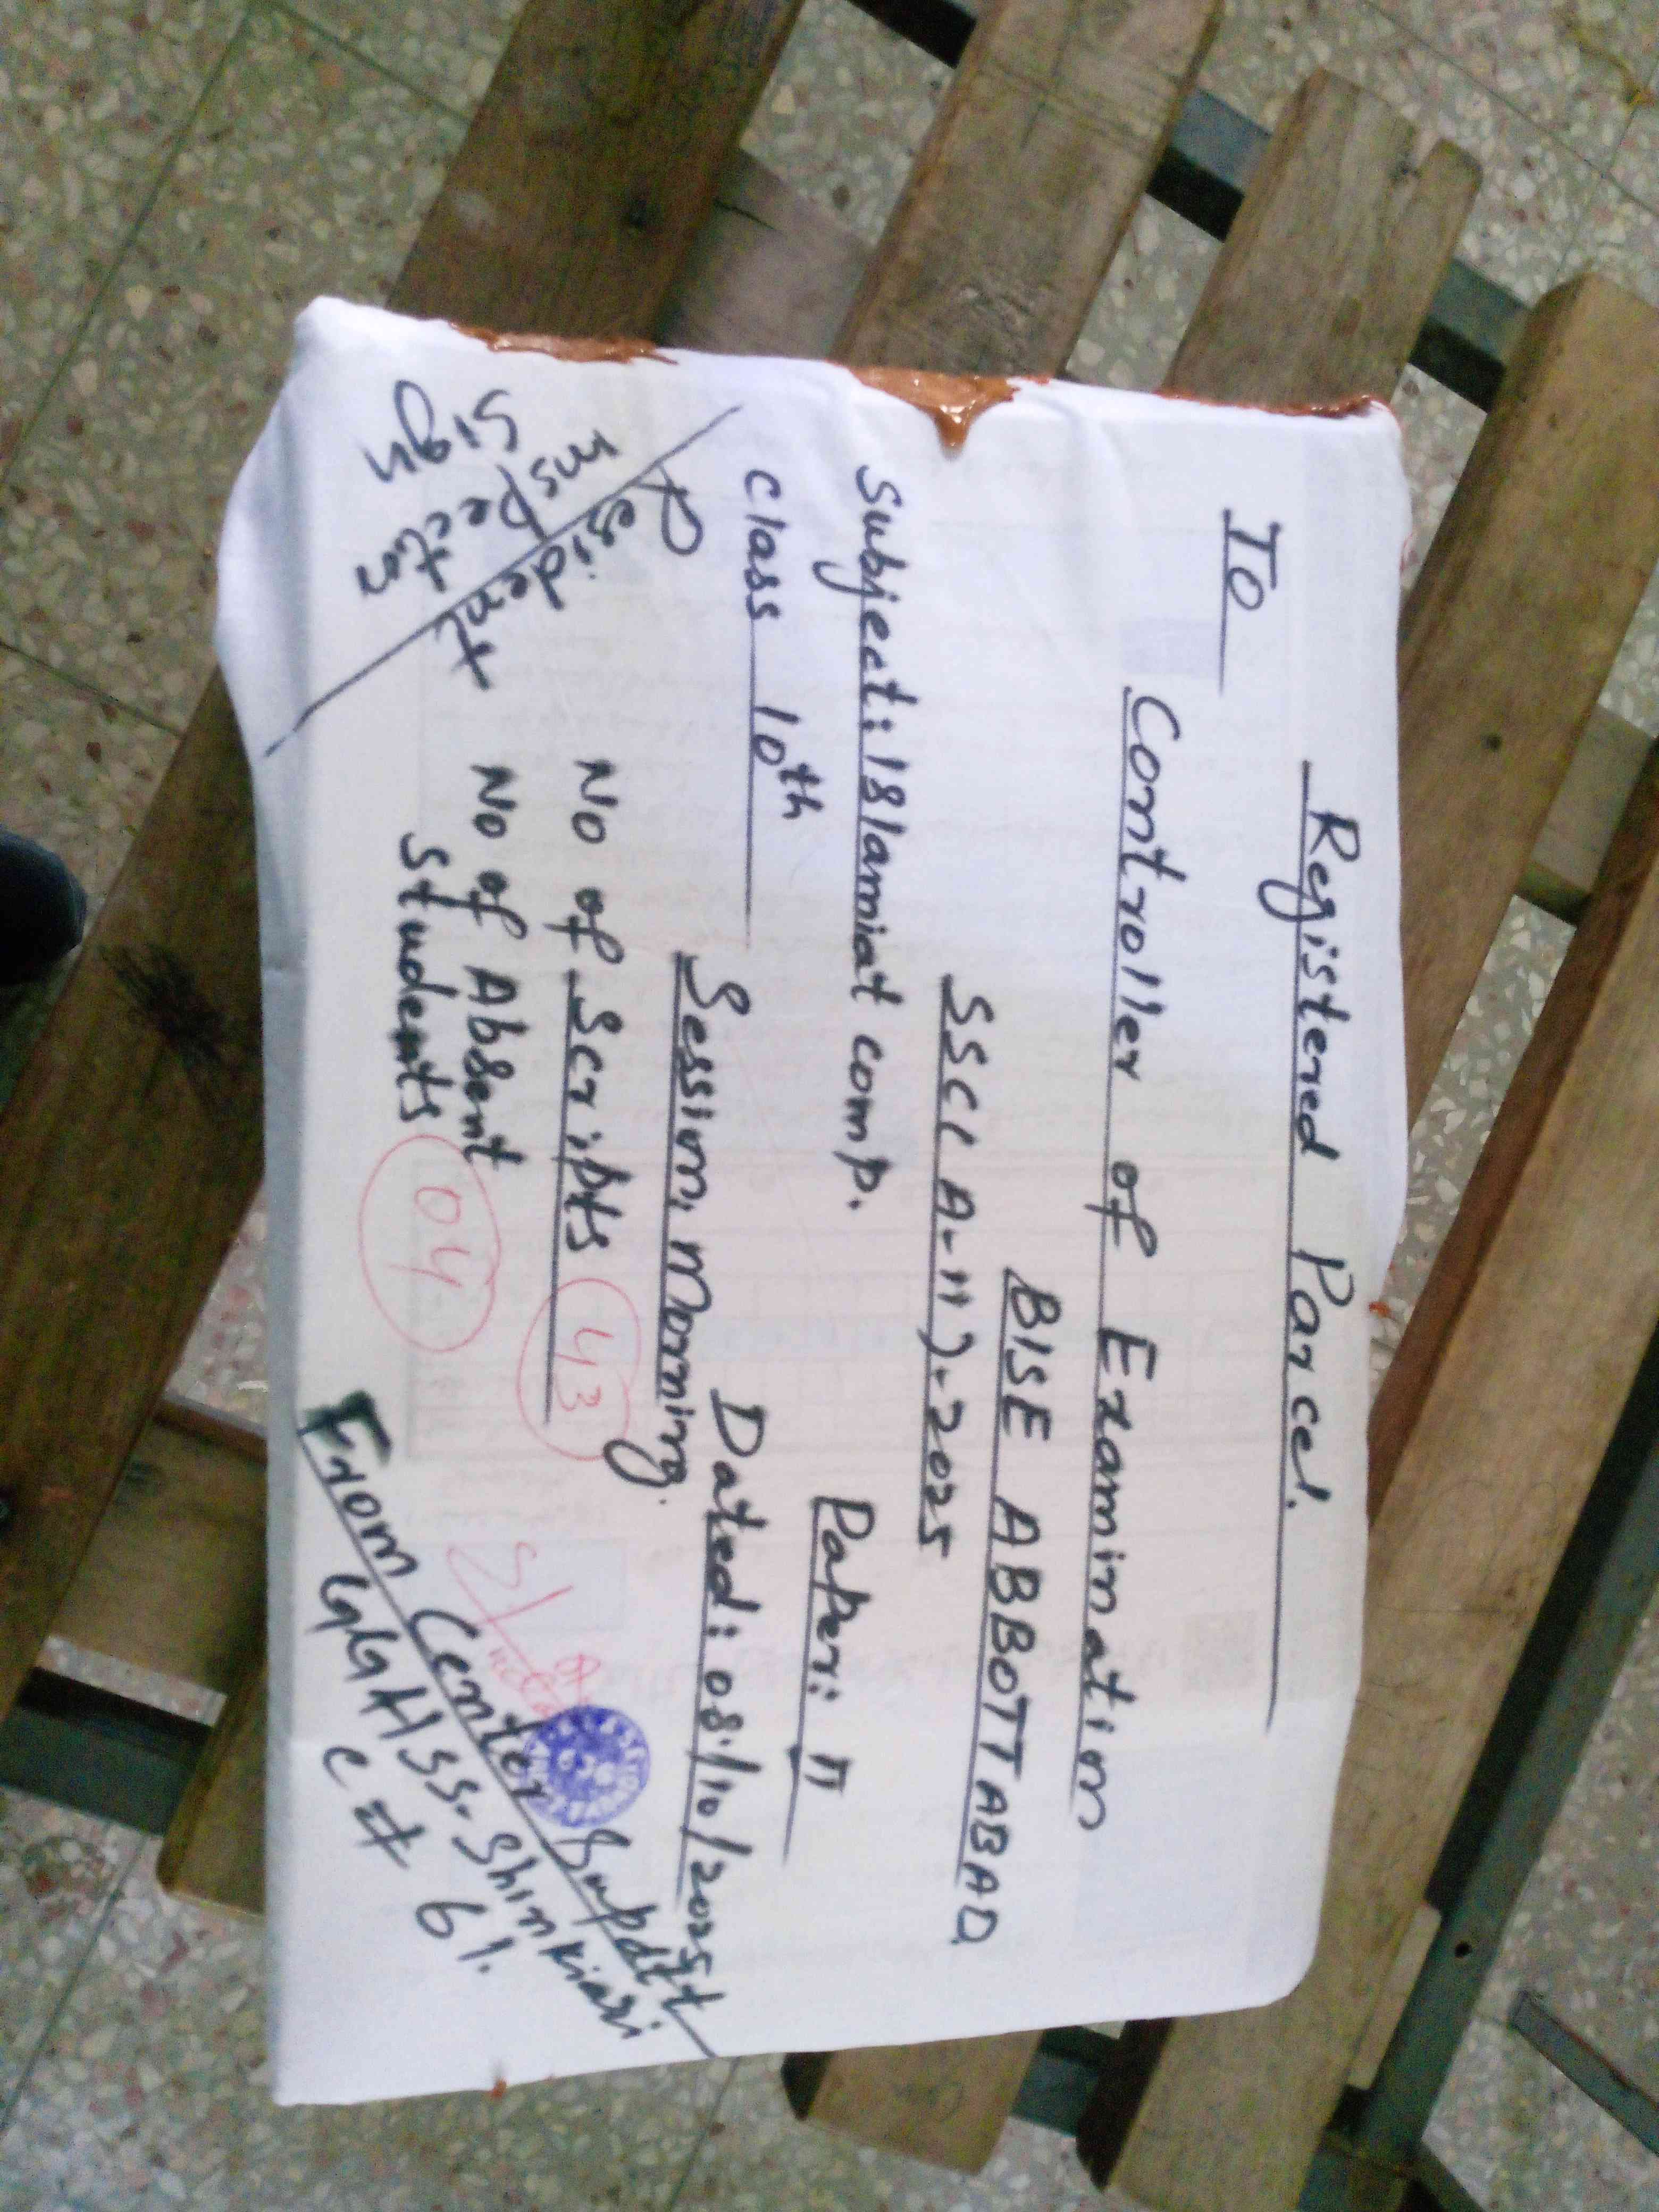 Registered Parcel.
To
Controller of Examination
BISE ABBOTTABAD
SSC(A-II)-2025
Subject: Islamiat comp.
Paper: II
Class 10th
Dated: 08/10/2025
Session, Morning.
No of Scripts 43
No of Absent
Students 04
Resident
Inspector
Sign
From Center Supdtt
GGHSS. Shinkiari
C# 61.